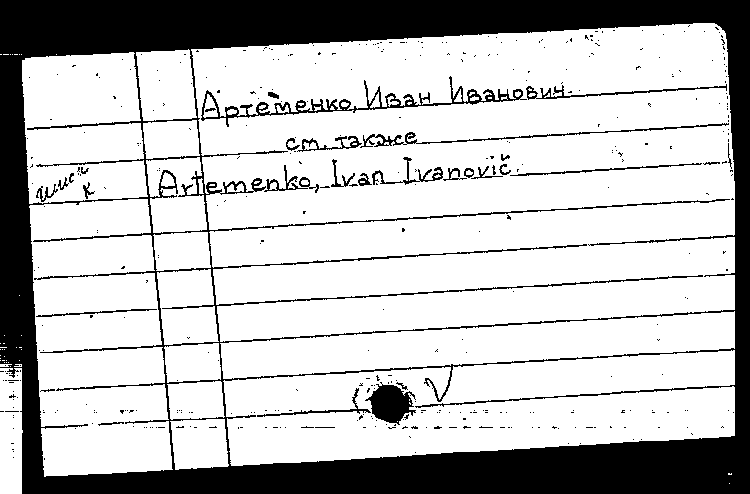 Артеменко, Иван Иванович.
см. также
Artemenko, Ivan Ivanovič.
к
V